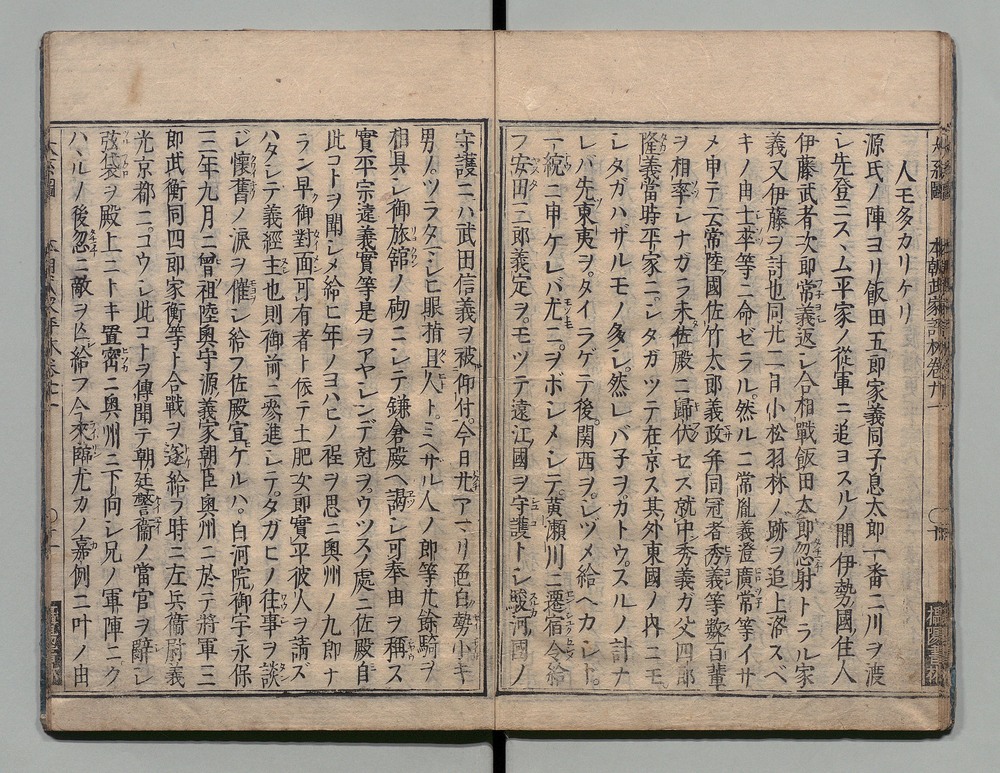 人モ多カリケリ
源氏ノ陣ヨリ飯田五郎家義同子息太郎一番ニ川ヲ渡
レ先登ニスヽム平家ノ從軍ニ追ヨスルノ間伊勢國住人
伊藤武者次郎常義返レ合相戰飯田太郎忽射トラル家
義又伊藤ヲ討也同廿二日小松羽林ノ跡ヲ追上洛スベ
キノ由士率等ニ命ゼラル然ルニ常胤義澄廣常等イサ
メ申テ云常陸國佐竹太郎義政并同冠者秀義等数百輩
ヲ相率レナガラ未佐殿ニ歸伏セス就中秀義ガ父四郎
隆義當時平家ニシタガツテ在京ス其外東國ノ内ニモ
シタガハザルモノ多シ然レバ子ヲカトウスルノ計ナ
レバ先東夷ヲタイラゲテ後関西ヲシヅメ給ヘカシト
一統ニ申ケレバ尤ニヲボシメシテ黄瀬川ニ遷宿令給
フ安田三郎義定ヲモツテ遠江國ヲ守護トシ駿河國ノ
守護ニハ武田信義ヲ被仰付今日廿アマリ色白勢小キ
男ノツラタマシヒ眼指且人トミヘザル人ノ郎等廿餘騎ヲ
相具シ御旅舘ノ砌ニシテ鎌倉殿ヘ謁シ可奉由ヲ稱ス
實平宗遠義實等是ヲアヤシンデ尅ヲウツスノ處ニ佐殿自
此コトヲ聞シメ給ヒ年ノヨハヒノ程ヲ思ニ奧州ノ九郎ナ
ラン早御對面可有者ト依テ土肥次郎實平彼人ヲ請ズ
ハタシテ義經主也則御前ニ參進シテタガヒノ往事ヲ談
ジ懷舊ノ涙ヲ催シ給フ佐殿宣ケルハ白河院御宇永保
三年九月ニ曾祖陸奧守源義家朝臣奧州ニ於テ將軍三
郎武衡同四郎家衡等ト合戰ヲ遂給フ時ニ左兵衞尉義
光京都ニコウシ此コトヲ傳聞テ朝廷警衞ノ當官ヲ辭シ
弦袋ヲ殿上ニトキ置密ニ奧州ニ下向シ兄ノ軍陣ニク
ハヽルノ後忽ニ敵ヲ亾給フ今來臨尤カノ嘉例ニ叶ノ由